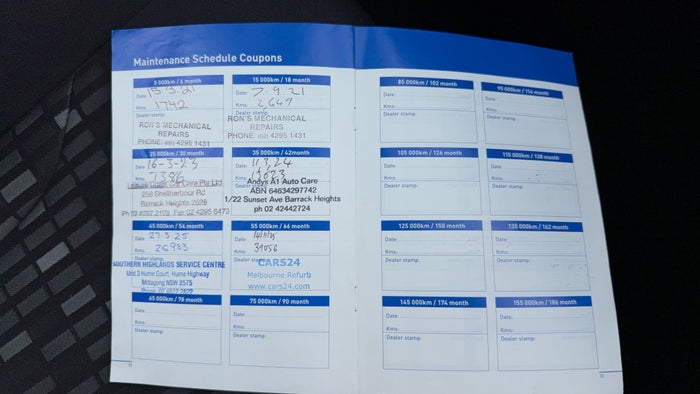 Maintenance Schedule Coupons
5 000km / 6 month
Date: 15-3-21
Kms: 1742
Dealer stamp:
RON'S MECHANICAL
REPAIRS
PHONE: (02) 4295 1431
15 000km / 18 month
Date: 7.9.21
Kms: 2,647
Dealer stamp:
RON'S MECHANICAL
REPAIRS
PHONE: (02) 4295 1431
25 000km / 30 month
Date: 16-3-23
Kms: 7386
Care Pty Ltd
256 Shellharbour Rd
Barrack Heights 2528
Ph 02 4297 2109 Fax 02 4295 6473
35 000km / 42month
Date:
Kms:
Andys A1 Auto Care
ABN 64634297742
1/22 Sunset Ave Barrack Heights
ph 02 42442724
45 000km / 54 month
Date: 27-3-25
Kms: 26933
Dealer stamp:
SOUTHERN HIGHLANDS SERVICE CENTRE
Unit 3 Hume Court, Hume Highway
Mittagong NSW 2575
55 000km / 66 month
Date:
Kms: 31056
Dealer stamp:
CARS24
Melbourne Refurb
www.cars24.com
65 000km / 78 month
Date:
Kms:
Dealer stamp:
75 000km / 90 month
Date:
Kms:
Dealer stamp:
85 000km / 102 month
Date:
Kms:
Dealer stamp:
95 000km / 114 month
Date:
Kms:
Dealer stamp:
105 000km / 126 month
Date:
Kms:
Dealer stamp:
115 000km / 138 month
Date:
Kms:
Dealer stamp:
125 000km / 150 month
Date:
Kms:
Dealer stamp:
135 000km / 162 month
Date:
Kms:
Dealer stamp:
145 000km / 174 month
Date:
Kms:
Dealer stamp:
155 000km / 186 month
Date:
Kms:
Dealer stamp: